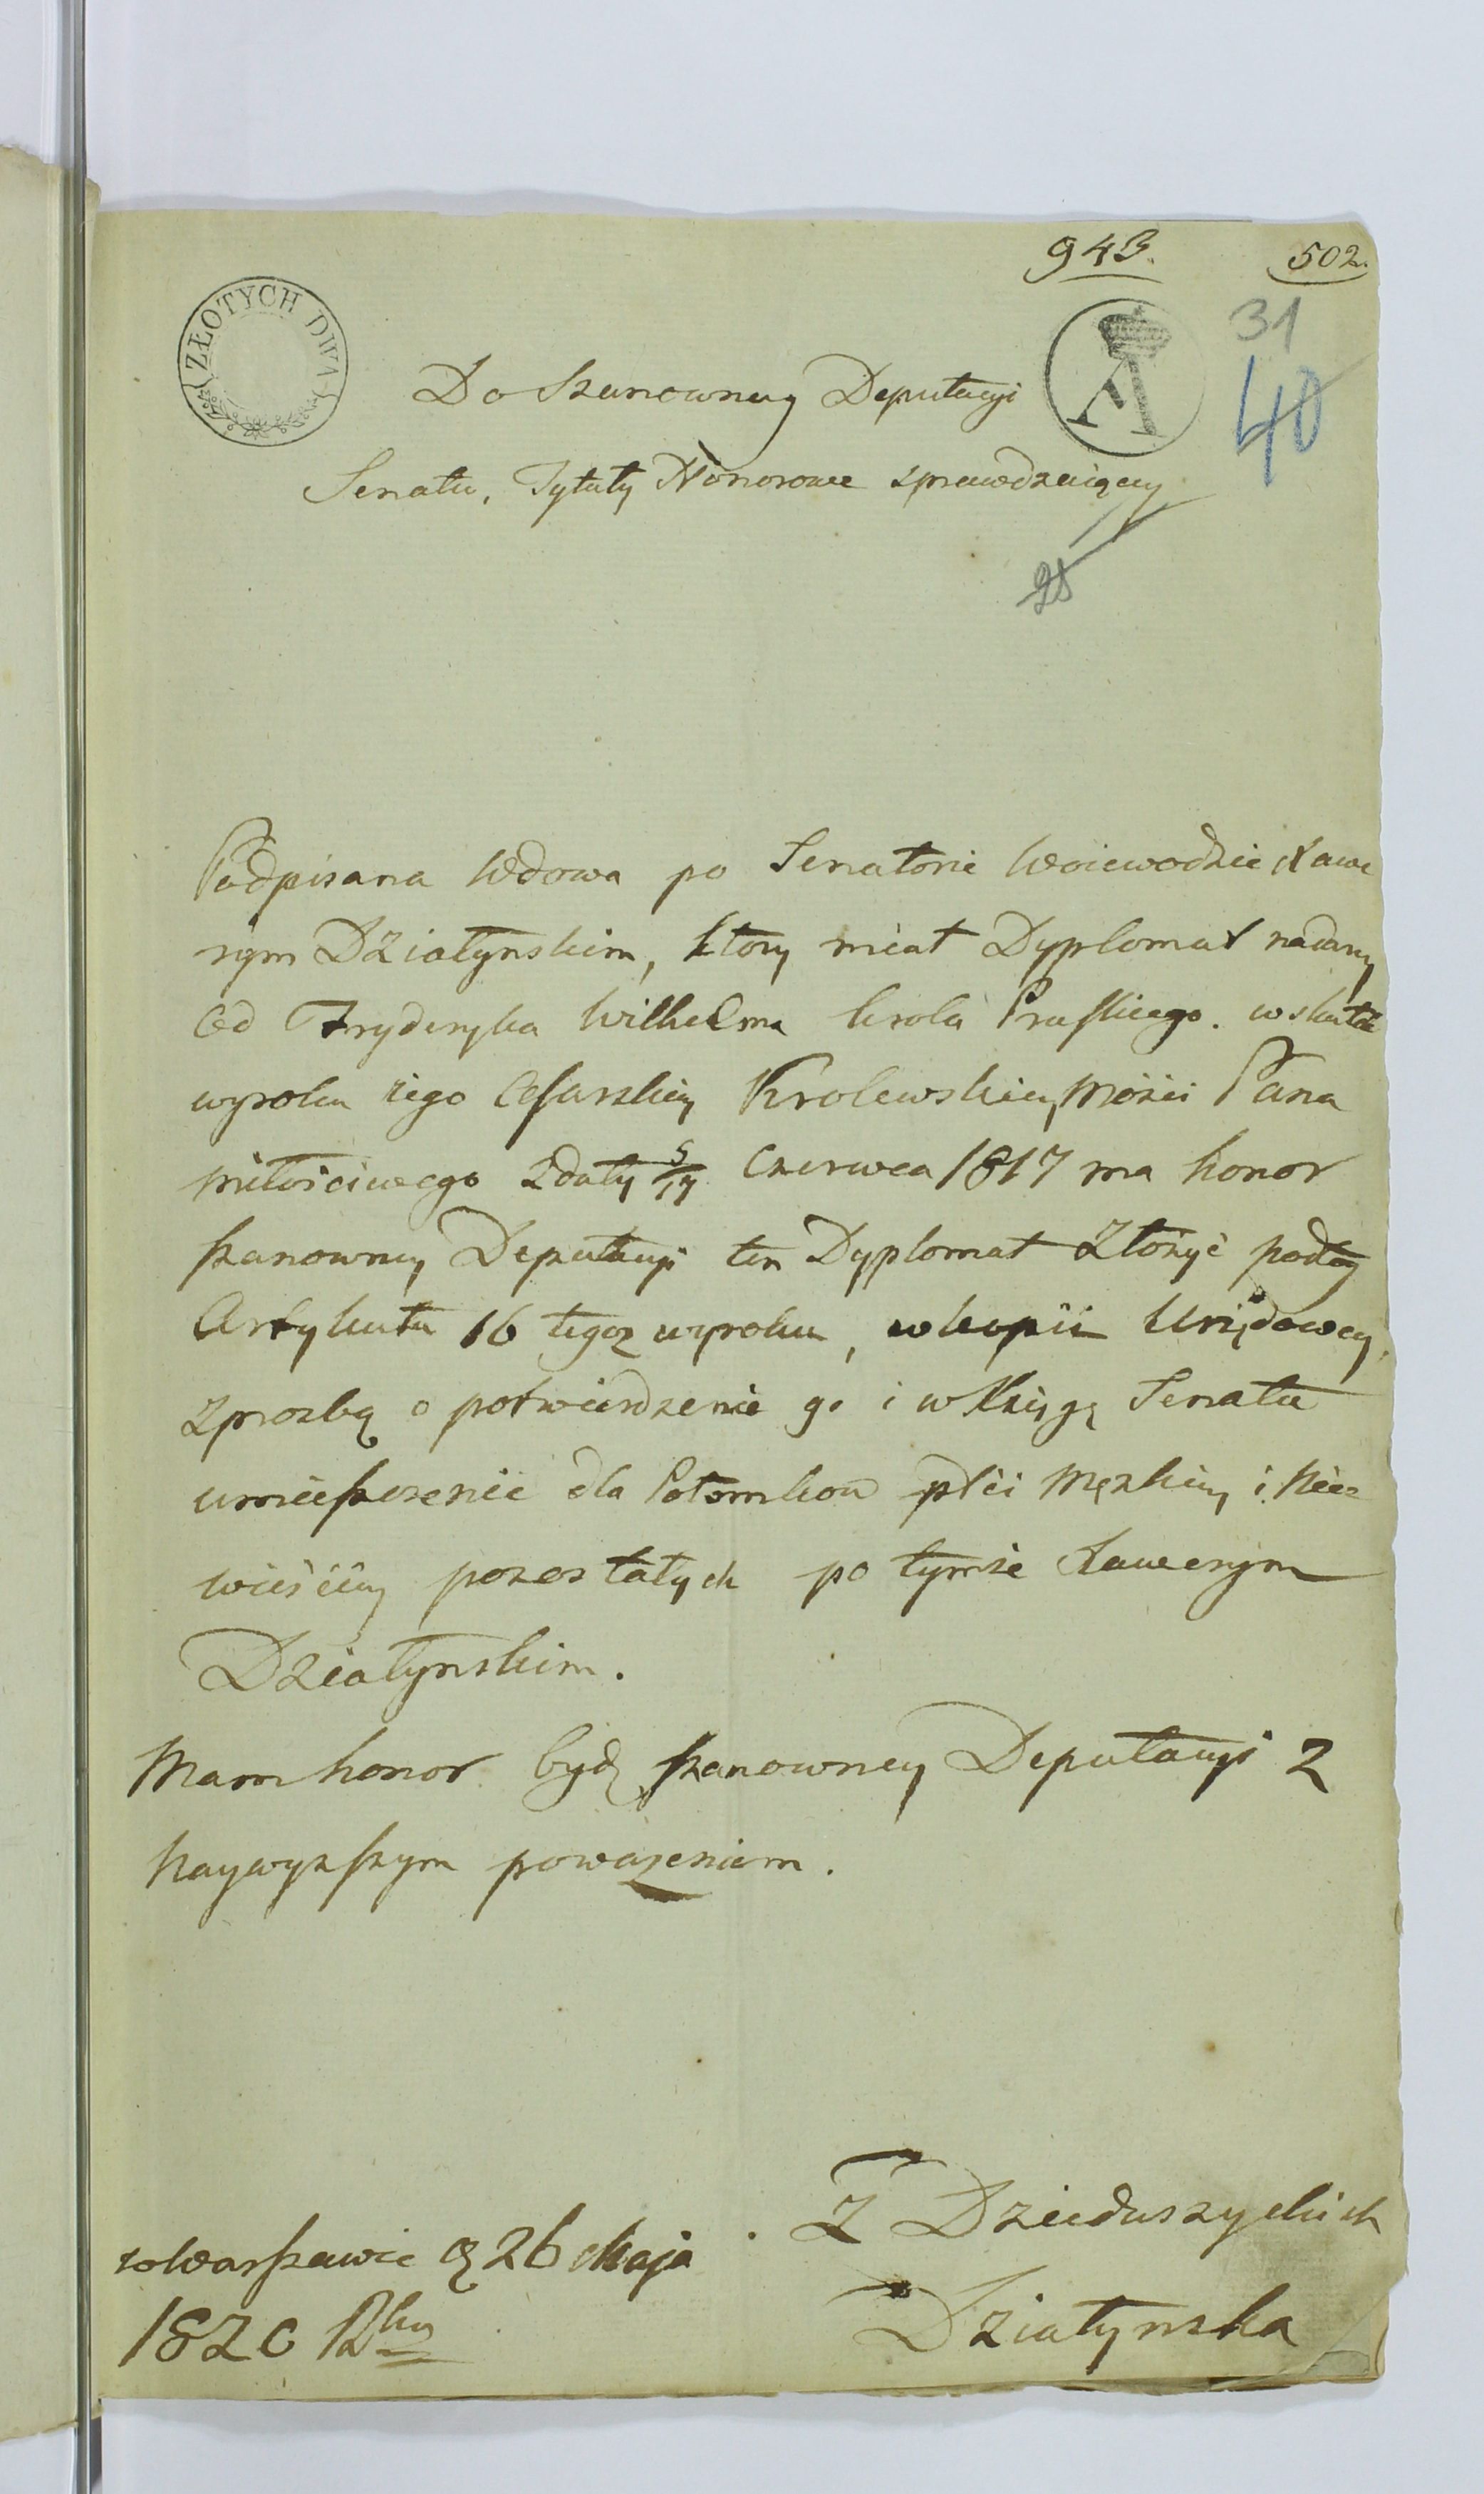 943.
502.
ZŁOTYCH DWA
A
31
40
Do Szanowney Deputacyi
Senatu, Tytuły Honorowe sprawdzaiącey
25
Podpisana Wdowa po Senatorie Woiewodzie Xawe
rym Działynskim, ktory miał Dyplomat nadany
Od Fryderyka Wilhelma krola Pruskiego. w skutek
wyroku iego Cesarskiey Krolewskiey Mości Pana
Miłościwego z daty 5/17 Czerwca 1817 ma honor
szanowney Deputacyi ten Dyplomat Złożyć podług
Artykułu 16 tegoz wyroku, w kopii Urzędowey
z prozbą o potwierdzenie go i w Xsięgę Senatu
umieszczenie dla Potomkow płci Męzkiey i Nie-
wieściey pozostałych po tymże Xawerym
Działynskim.
Mam honor bydz szanowney Deputacyi z
Naywyzszym powazeniem.
w Warszawie d 26 Maja
1820 Rku
Z Dzieduszyckich
Działynska